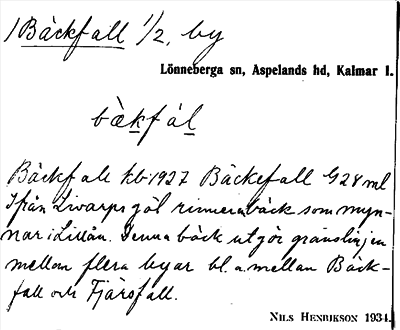 1 Bäckfall 1/2, by
Lönneberga sn, Aspelands hd, Kalmar l.
bæ̀kfál
Bäckfall kb 1927 Bäckefall G28 ml
Ifrån Livarps göl rinner en bäck som myn-
nar i Lillån. Denna bäck utgör gränslinjen
mellan flera byar bl. a. mellan Bäck-
fall och Fjärsfall.
NILS HENRIKSON 1934.